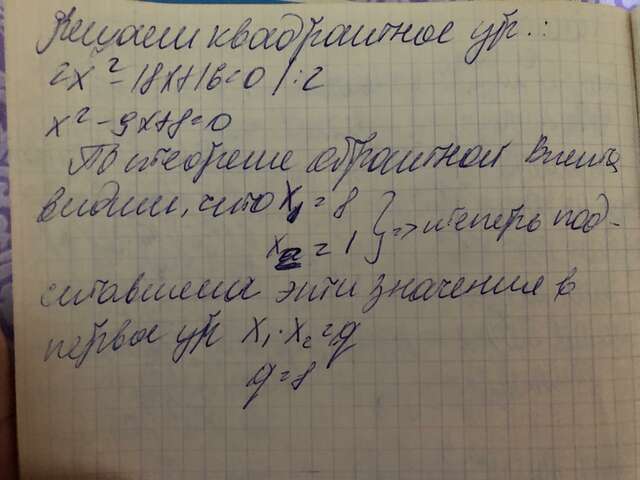 Решаем квадратное ур.:
2x² - 18x + 16 = 0 | : 2
x² - 9x + 8 = 0
По теореме обратной Виета
видим, что x₁ = 8
x₂ = 1 } => теперь под-
ставляем эти значения в
первое ур x₁ · x₂ = q
q = 8